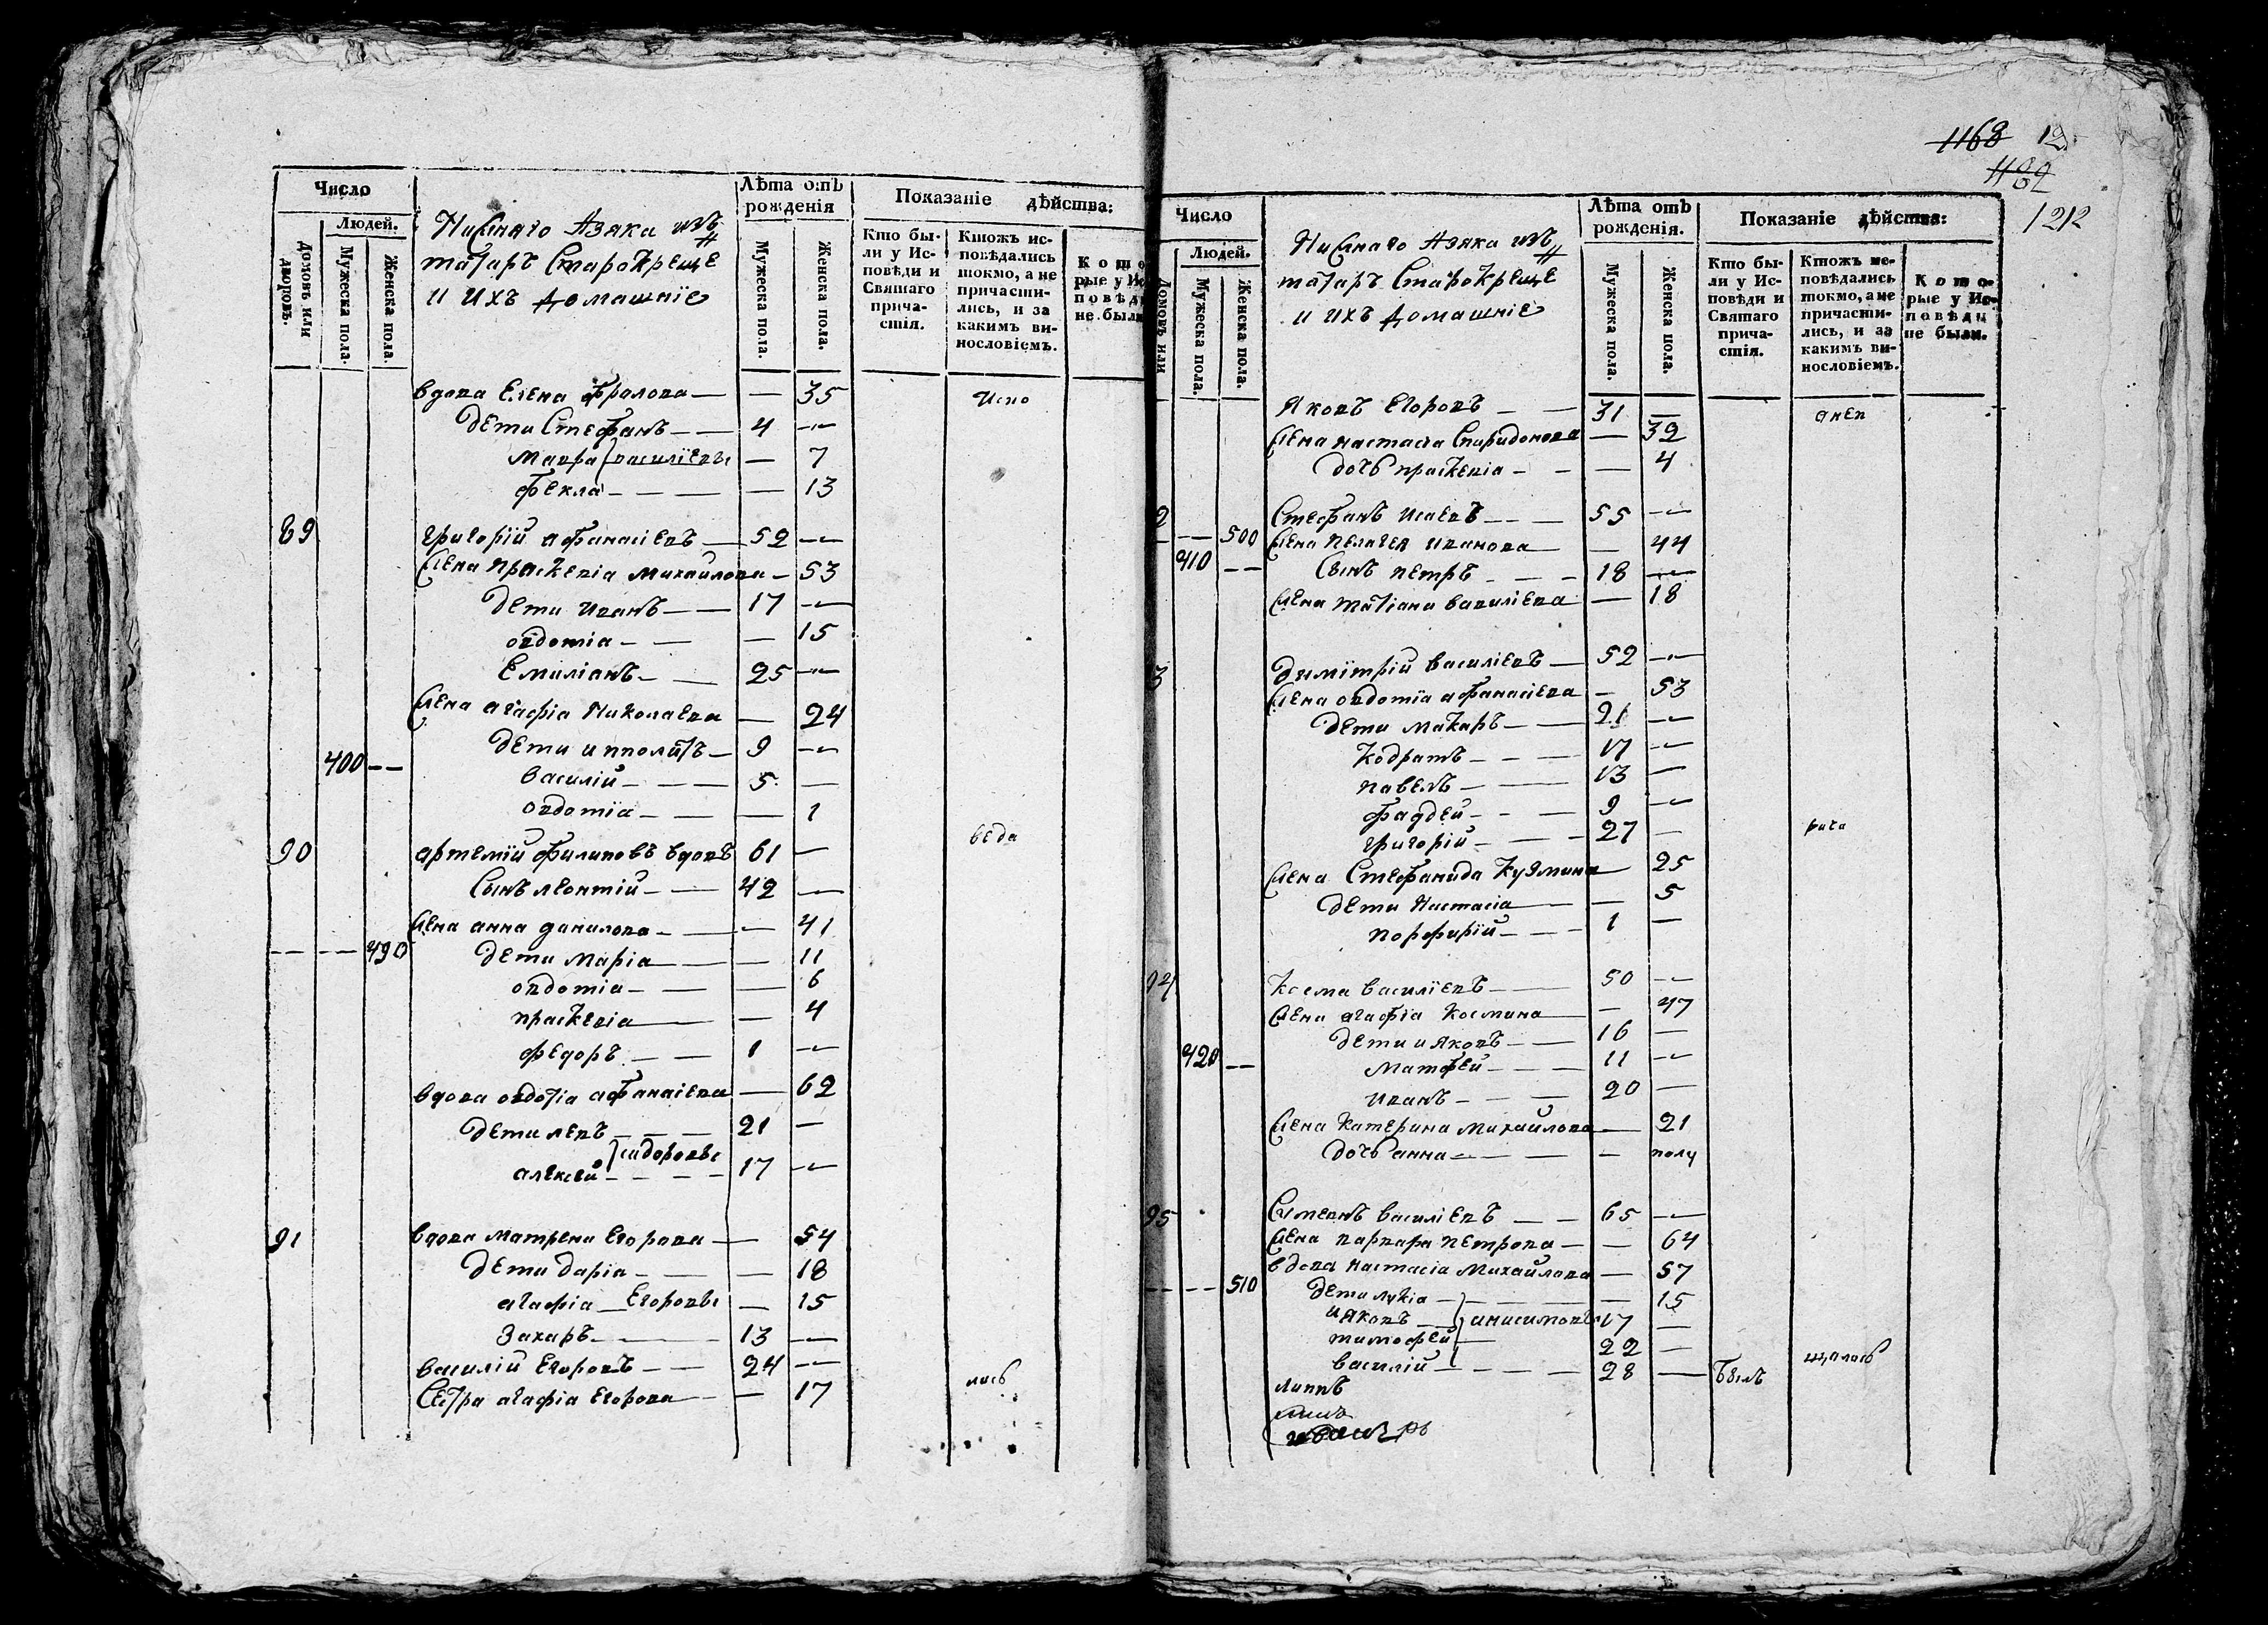 Число
Людей.
Домовъ или дворовъ.
Мужеска пола.
Женска пола.
Нижняго Азяка изъ
татаръ Старокреще
и ихъ домашніе
Лѣта отъ рожденія
Мужеска пола.
Женска пола.
Показаніе дѣйства:
Кто бы-
ли у Ис-
повѣди и
Святаго
прича-
стія.
Ктожъ ис-
повѣдались
токмо, а не
причасти-
лись, и за
какимъ ви-
нословіемъ.
Кото
рые у Ис
повѣди
не были
вдова Елена Фролова — — 35 испо
дети Стефанъ — 4 —
Мавра василіевы — 7
Фекла — — 13
89 григорій афанасіевъ — 52 —
жена праскевіа Михайлова — 53
дети иванъ — 17 —
овдотіа — — 15
Емиліанъ — 25 —
жена агафіа Николаева — 24
дети ипполитъ — 9 —
400 — василій — 5 —
овдотіа — — 1
90 артемій филиповъ вдовъ 61 — веда
Сынъ леонтій — 42 —
жена анна данилова — — 41
— — 490 дети Маріа — — 11
овдотіа — — 6
праскевіа — — 4
федоръ — 1 —
вдова овдотіа афанасіева — 62
дети левъ — 21 —
сидоровы
алексей — 17 —
91 вдова матрена Егорова — — 54
дети даріа — — 18
агафіа Егоровы — 15
Захаръ — 13 —
василій Егоровъ — 24 —
Сестра агафіа Егорова — — 17 лись
1168 12
1182
1212
Число
Людей.
Домовъ или
Мужеска пола.
Женска пола.
Нижняго Азяка изъ
татаръ Старокреще
и ихъ домашніе
Лѣта отъ рожденія.
Мужеска пола.
Женска пола.
Показаніе дѣйства:
Кто бы-
ли у Ис-
повѣди и
Святаго
прича-
стія.
Ктожъ ис-
повѣдались
токмо, а не
причасти-
лись, и за
какимъ ви-
нословіемъ.
Кото-
рые у Ис-
повѣди
не были.
Яковъ Егоровъ — 31 — анеп
жена настасіа Спиридонова — 32
дочь праскевіа — — 4
2 Стефанъ Исаевъ — 55 —
— 500 жена пелагея иванова — — 44
410 — Сынъ петръ — 18 —
жена татіана василіева — 18
3 димитрій василіевъ — 52 —
жена овдотіа афанасіева — 53
дети макаръ — 21 —
Кодратъ — 17 —
павелъ — 13 —
фаддей — 9 —
григорій — 27 — рича
жена Стефанида Кузмина — 25
дети Настасіа — — 5
порфирій — 1 —
94 Косма василіевъ — 50 —
жена агафіа Космина — 47
дети иаковъ — 16 —
420 — Матфей — 11 —
иванъ — 20 —
жена Катерина Михайлова — 21
дочь анна — — полу
95 Сымеонъ василіевъ — 65 —
жена варвара петрова — — 64
вдова настасіа Михайлова — 57
— — 510 дети лукіа — — 15
иаковъ анисимовы 17 —
тимофей — 22 —
василій — 28 — былъ щалась